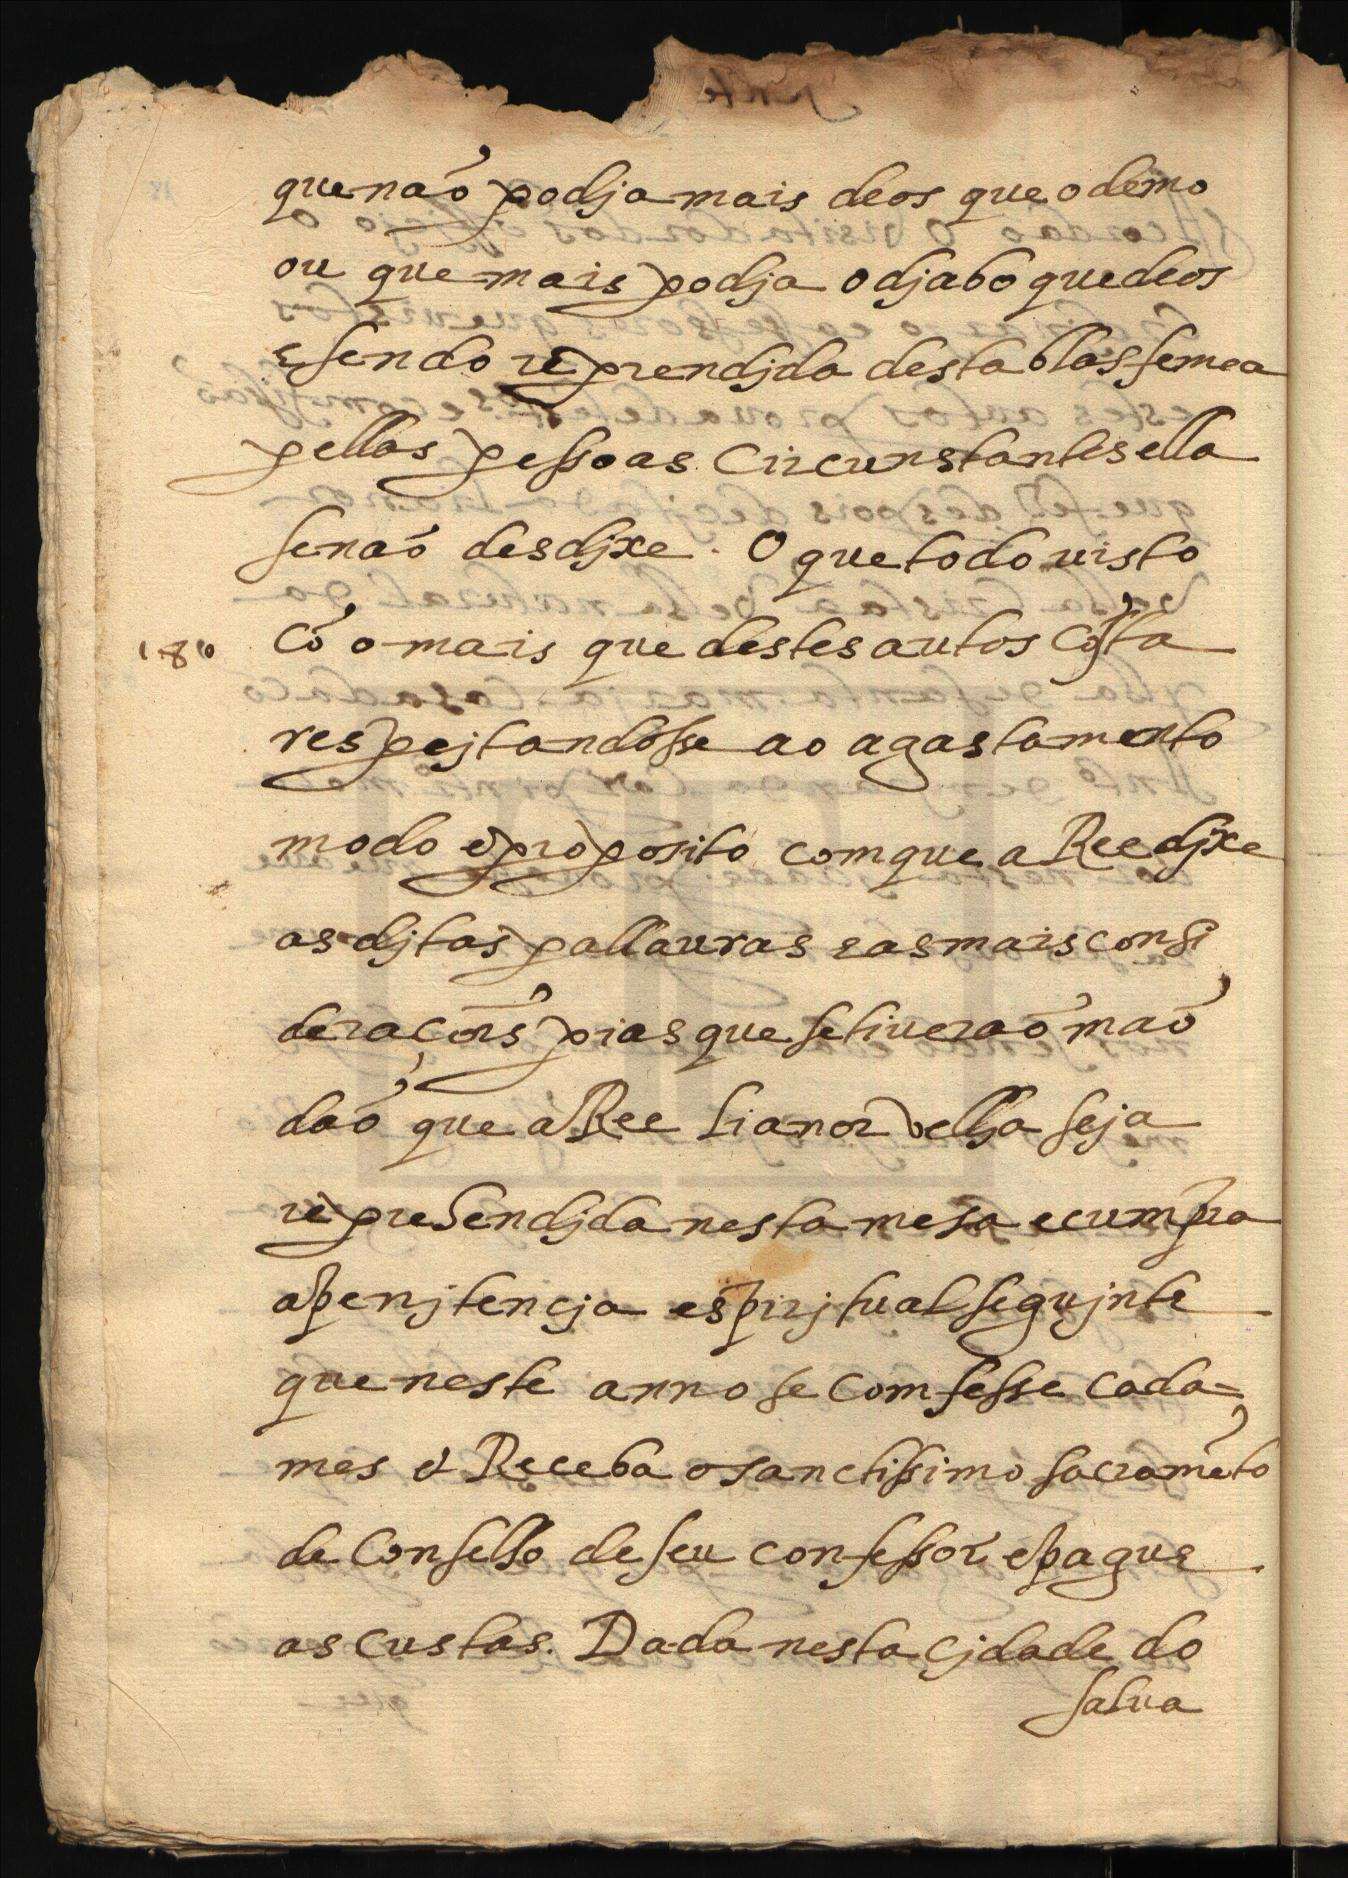 que não podja mais deos que o demo
ou que mais podja o djabo que deos
e sendo reprendjda desta blasfemea
pellas pessoas Circunstantes ella
se não desdjxe. O que todo visto
180 Cõ o mais que destes autos Cõsta
respejtandosse ao agastamento
modo e proposito com que a Ree djxe
as djtas pallavras e as mais consi
deraçõis pias que se tiverão mão
dão que a Ree Lianor velha seja
represendjda nesta mesa e cumpra
a penjtencja espirjtual segujnte
que neste anno se comfesse cada
mes e Receba o sanctissimo sacramẽto
de Conselho de seu confessor e pague
as custas. Dada nesta cjdade do
salva